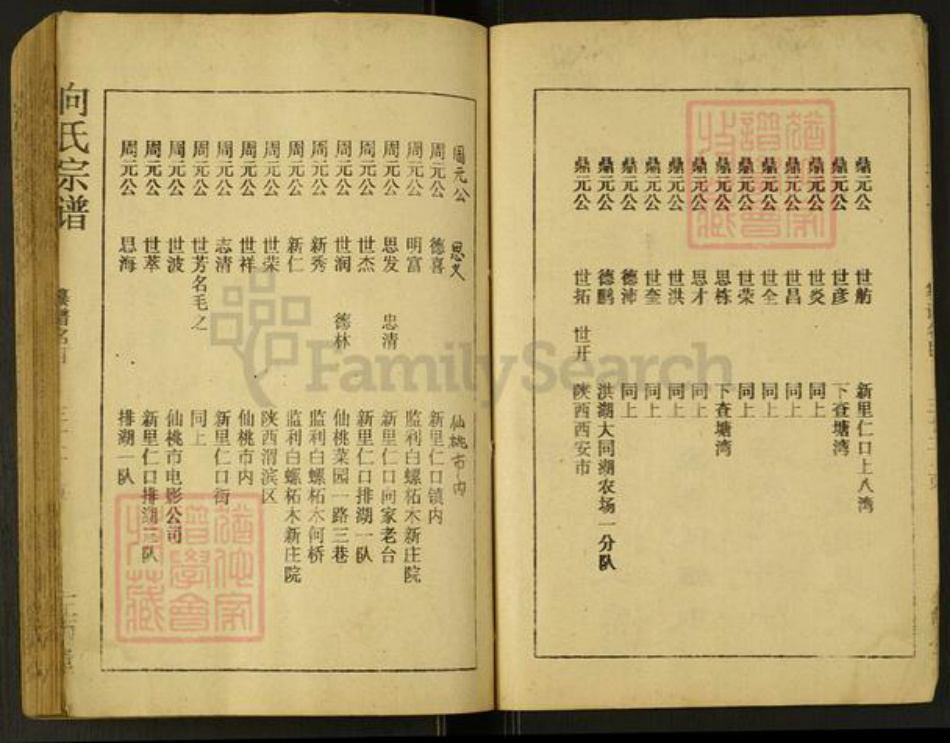 鼎元公 世舫 新里仁口上八湾
鼎元公 世彦 下查塘湾
鼎元公 世炎 同上
鼎元公 世昌 同上
鼎元公 世全 同上
鼎元公 世荣 同上
鼎元公 思栋 下查塘湾
鼎元公 思才 同上
鼎元公 世洪 同上
鼎元公 世奎 同上
鼎元公 德沛 同上
鼎元公 德鹏 洪湖大同湖农场一分队
鼎元公 世拓 世开 陕西西安市
周元公 思义 仙桃市内
周元公 德喜 新里仁口镇内
周元公 明富 监利白螺柘木新庄院
周元公 思发 忠清 新里仁口向家老台
周元公 世杰 新里仁口排湖一队
周元公 世润 德林 仙桃菜园一路三巷
周元公 新秀 监利白螺柘木何桥
周元公 新仁 监利白螺柘木新庄院
周元公 世荣 陕西渭滨区
周元公 世祥 仙桃市内
周元公 志清 新里仁口街
周元公 世芳名毛之 同上
周元公 世波 仙桃市电影公司
周元公 世萃 新里仁口排湖三队
周元公 思海 排湖一队
向氏宗谱
FamilySearch